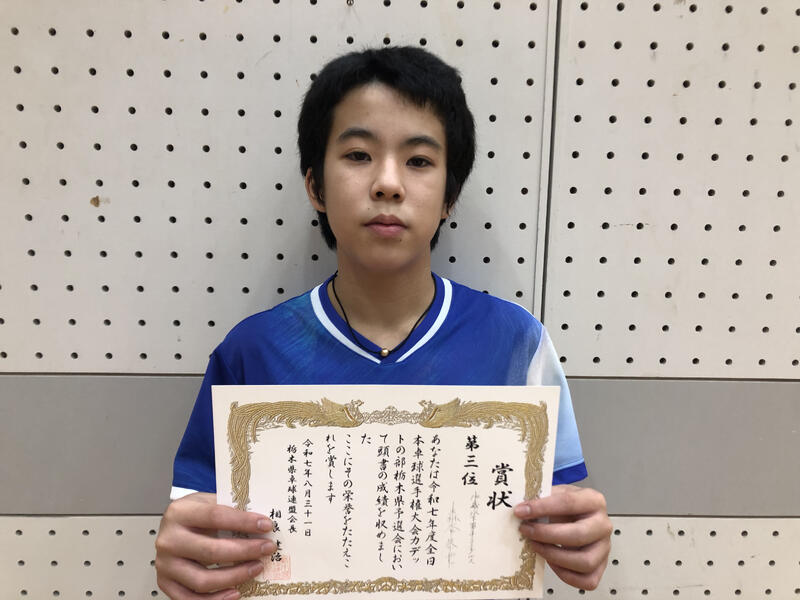 賞状
第三位
あなたは令和七年度全日
本卓球選手権大会カデッ
トの部栃木県予選会におい
て頭書の成績を収めまし
た
ここにその栄誉をたたえこ
れを賞します
令和七年八月三十一日
栃木県卓球連盟会長